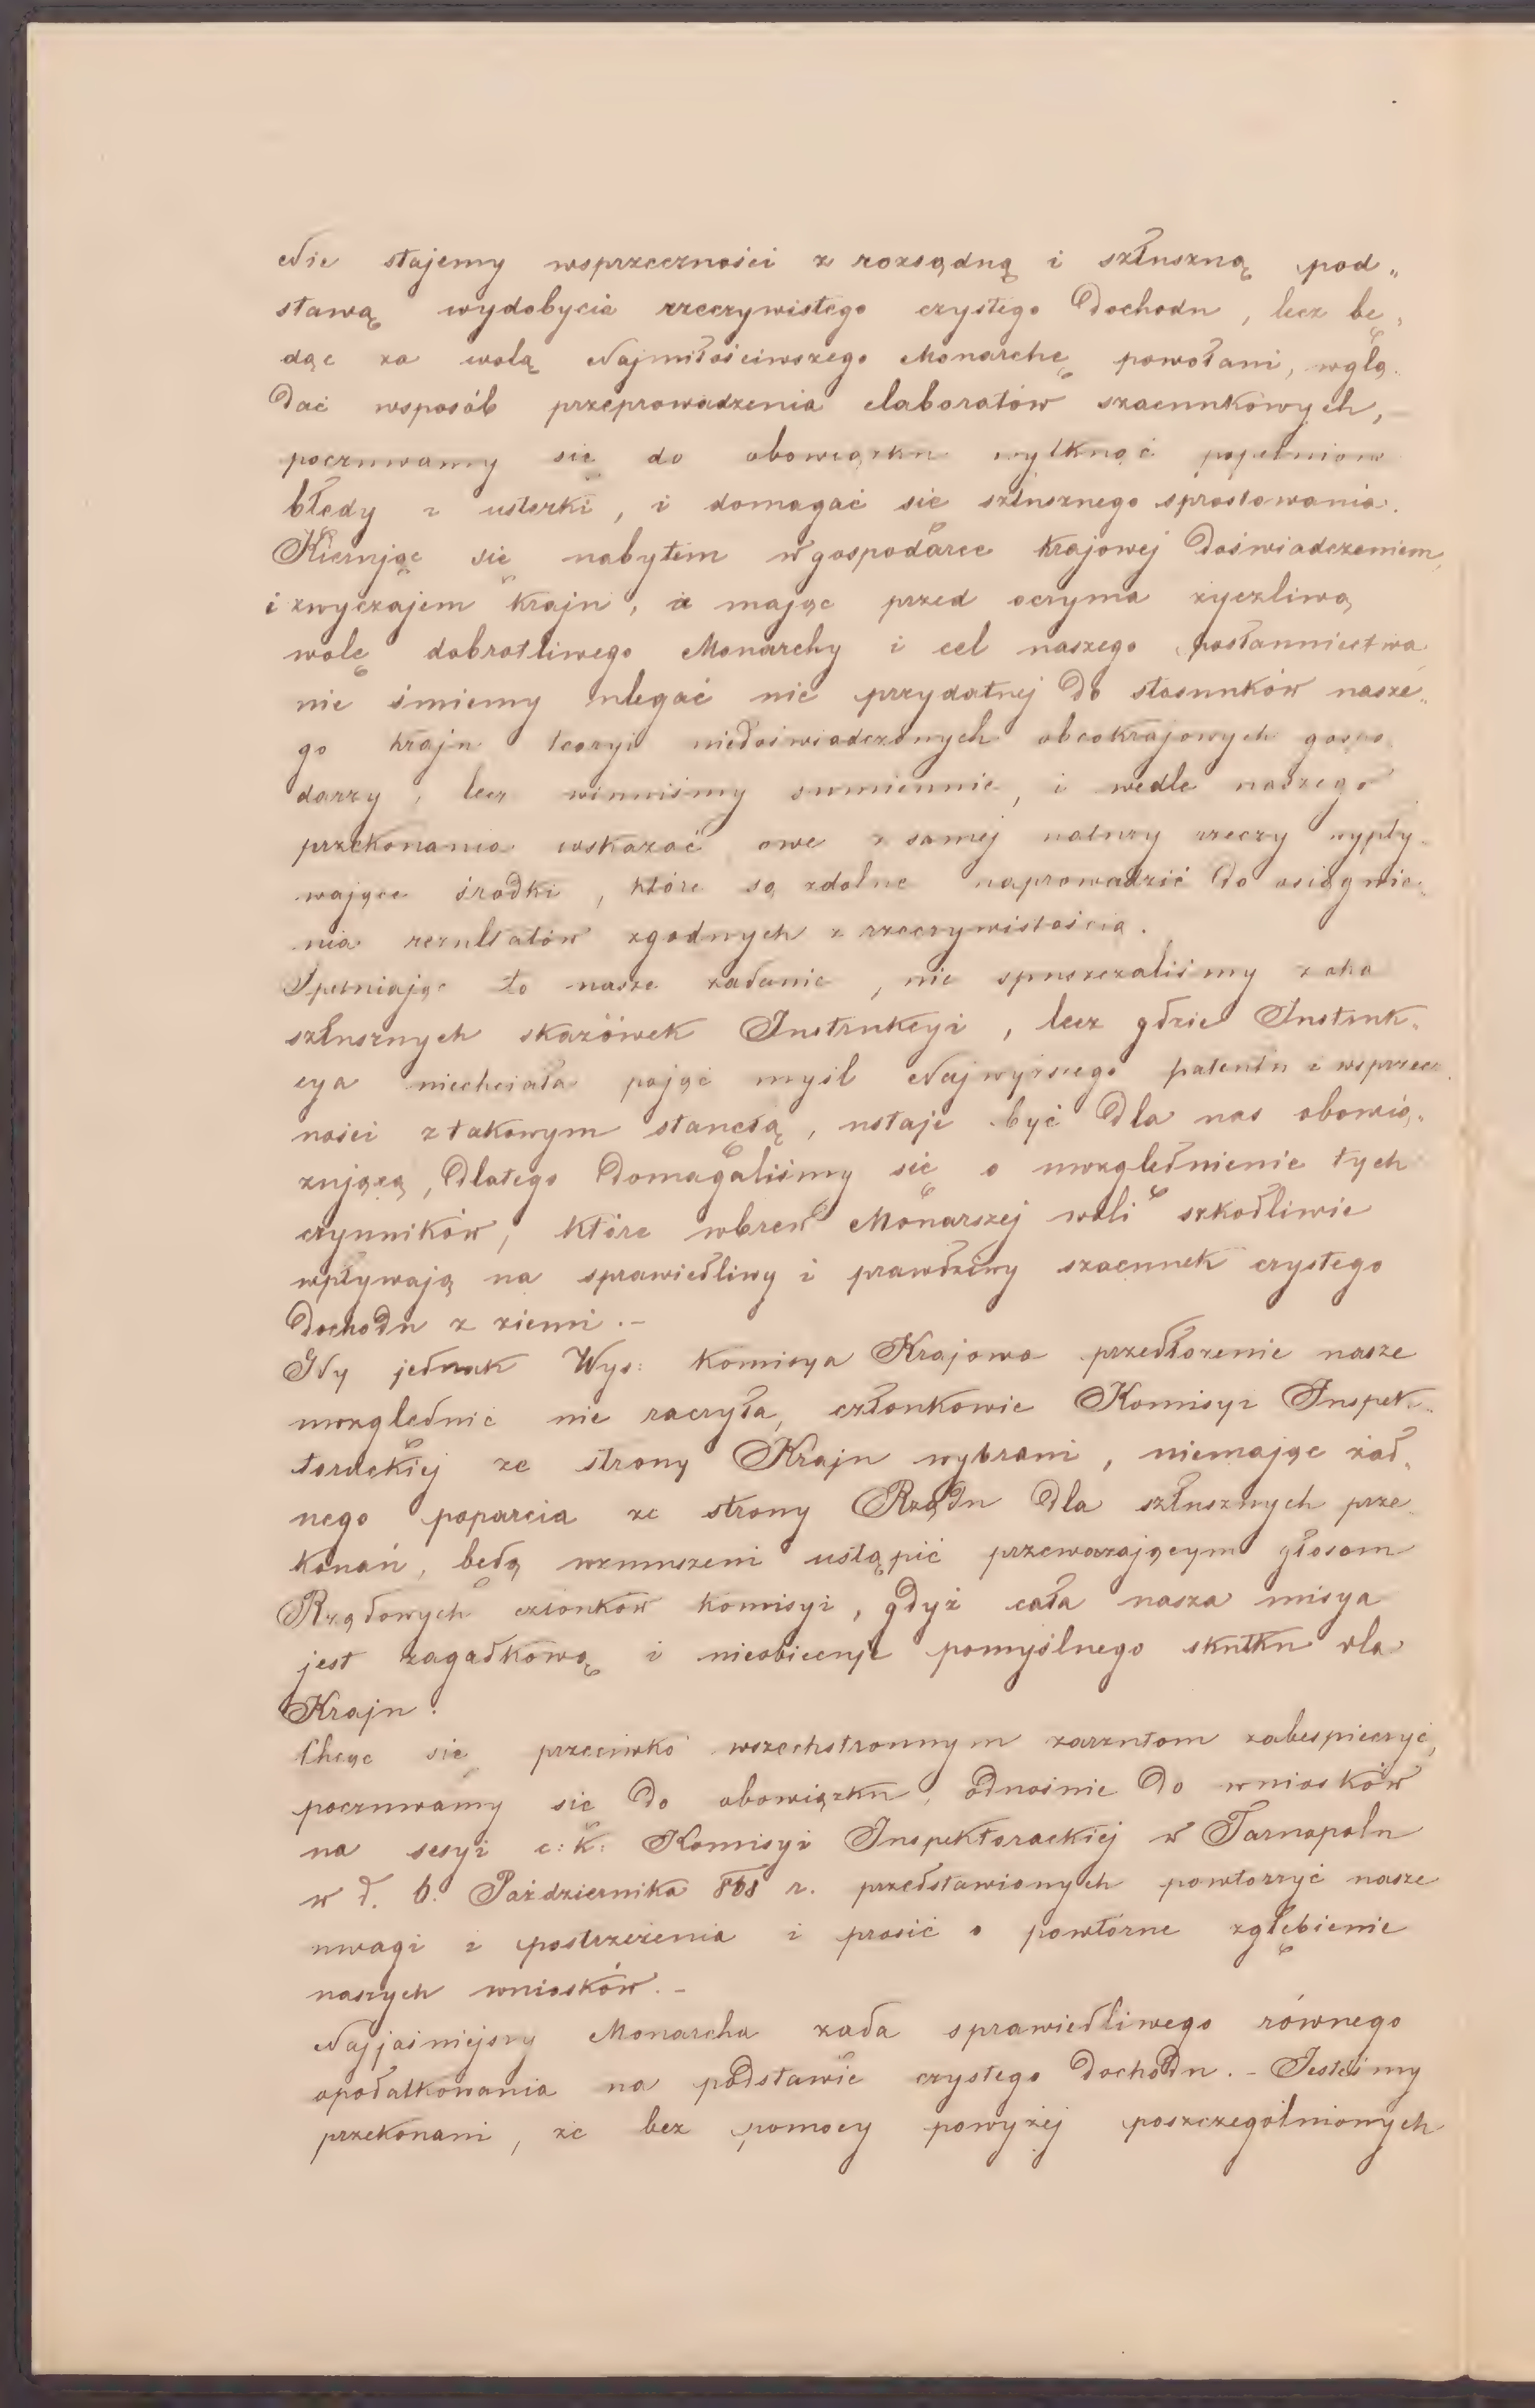 Nie stajemy wsprzeczności z rozsądną i szłuszną pod„
stawą wydobycia rzeczywistego czystego dochodu, lecz bę„
dąc za wolą Najmiłościwszego Monarchę powołani, wglą„
dać wsposób przeprowadzenia elaboratów szacunkowych,
poczuwamy się do obowiązku wytknąć popełnione
błędy i usterki, i domagać się szłusznego sprostowania.
Kierując się nabytem w gospodarce krajowej doświadczeniem,
i zwyczajem kraju, a mając przed oczyma życzliwą
wolę dobrotliwego Monarchy i cel naszego posłannictwa
nie śmiemy ulegać nie przydatnej do stosunków nasze„
go kraju teoryi niedoświadczonych obcokrajowych gospo
darzy, lecz winniśmy sumiennie, i wedle naszego
przekonania wskazać owe z samej natury rzeczy wypły„
wające środki, które są zdolne naprowadzić do osiągnie„
nia rezultatów zgodnych z rzeczywistością.
Spełniając to nasze zadanie, nie spuszczaliśmy z oka
szłusznych skazówek Instrukcyi, lecz gdzie Instruk„
cya niechciała pojąć myśl Najwyższego patentu i wsprzecz
ności z takowym stanęła, ustaje być dla nas obowią„
zującą, dlatego domagaliśmy się o uwzględnienie tych
czynników, które wbrew Monarszej woli szkodliwie
wpływają na sprawiedliwy i prawdziwy szacunek czystego
dochodu z ziemi.–
Gdy jednak Wys: Komisya Krajowa przedłożenie nasze
uwzględnić nie raczyła, członkowie Komisyi Inspek„
torackiej ze strony Kraju wybrani, niemając żad„
nego poparcia ze strony Rządu dla szłusznych prze
konań, będą wzmuszeni ustąpić przeważającym głosom
Rządowych członków komisyi, gdyż cała nasza misya
jest zagadkową i nieobiecuje pomyślnego skutku dla
Kraju.
Chcąc się przeciwko wszechstronnym zarzutom zabespieczyć,
poczuwamy się do obowiązku, odnośnie do wniosków
na sesyi c: k: Komisyi Inspektorackiej w Tarnopolu
w d. 6. Października r. przedstawionych powtorzyć nasze
uwagi i postrzeżenia i prosić o powtórne zgłębienie
naszych wniosków.–
Najjaśniejszy Monarcha żąda sprawiedliwego równego
opodatkowania na podstawie czystego dochodu.– Jesteśmy
przekonani, że bez pomocy powyżej poszczególnionych